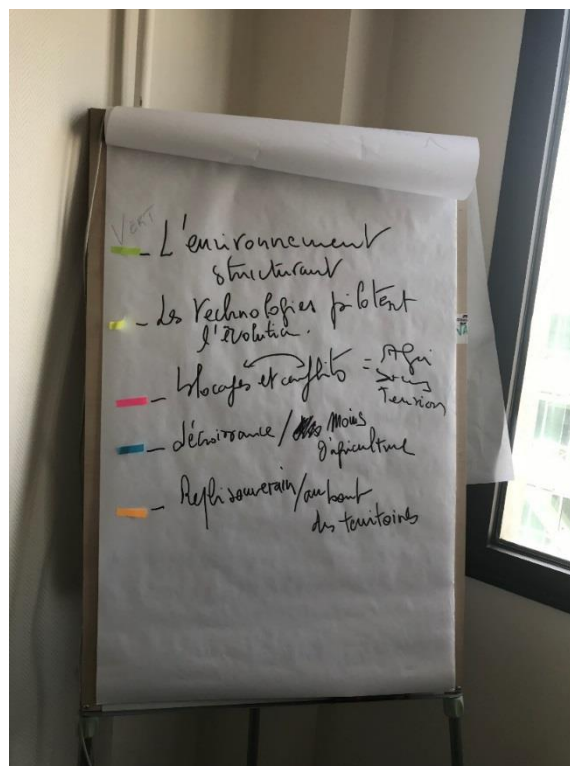 VERT
- L'environnement
structurant
- Les technologies pilotent
l'évolution.
- blocages et conflits = Agri
sous
Tension
- décroissance / moins
d'agriculture
- Repli souverain / au bout
des territoires